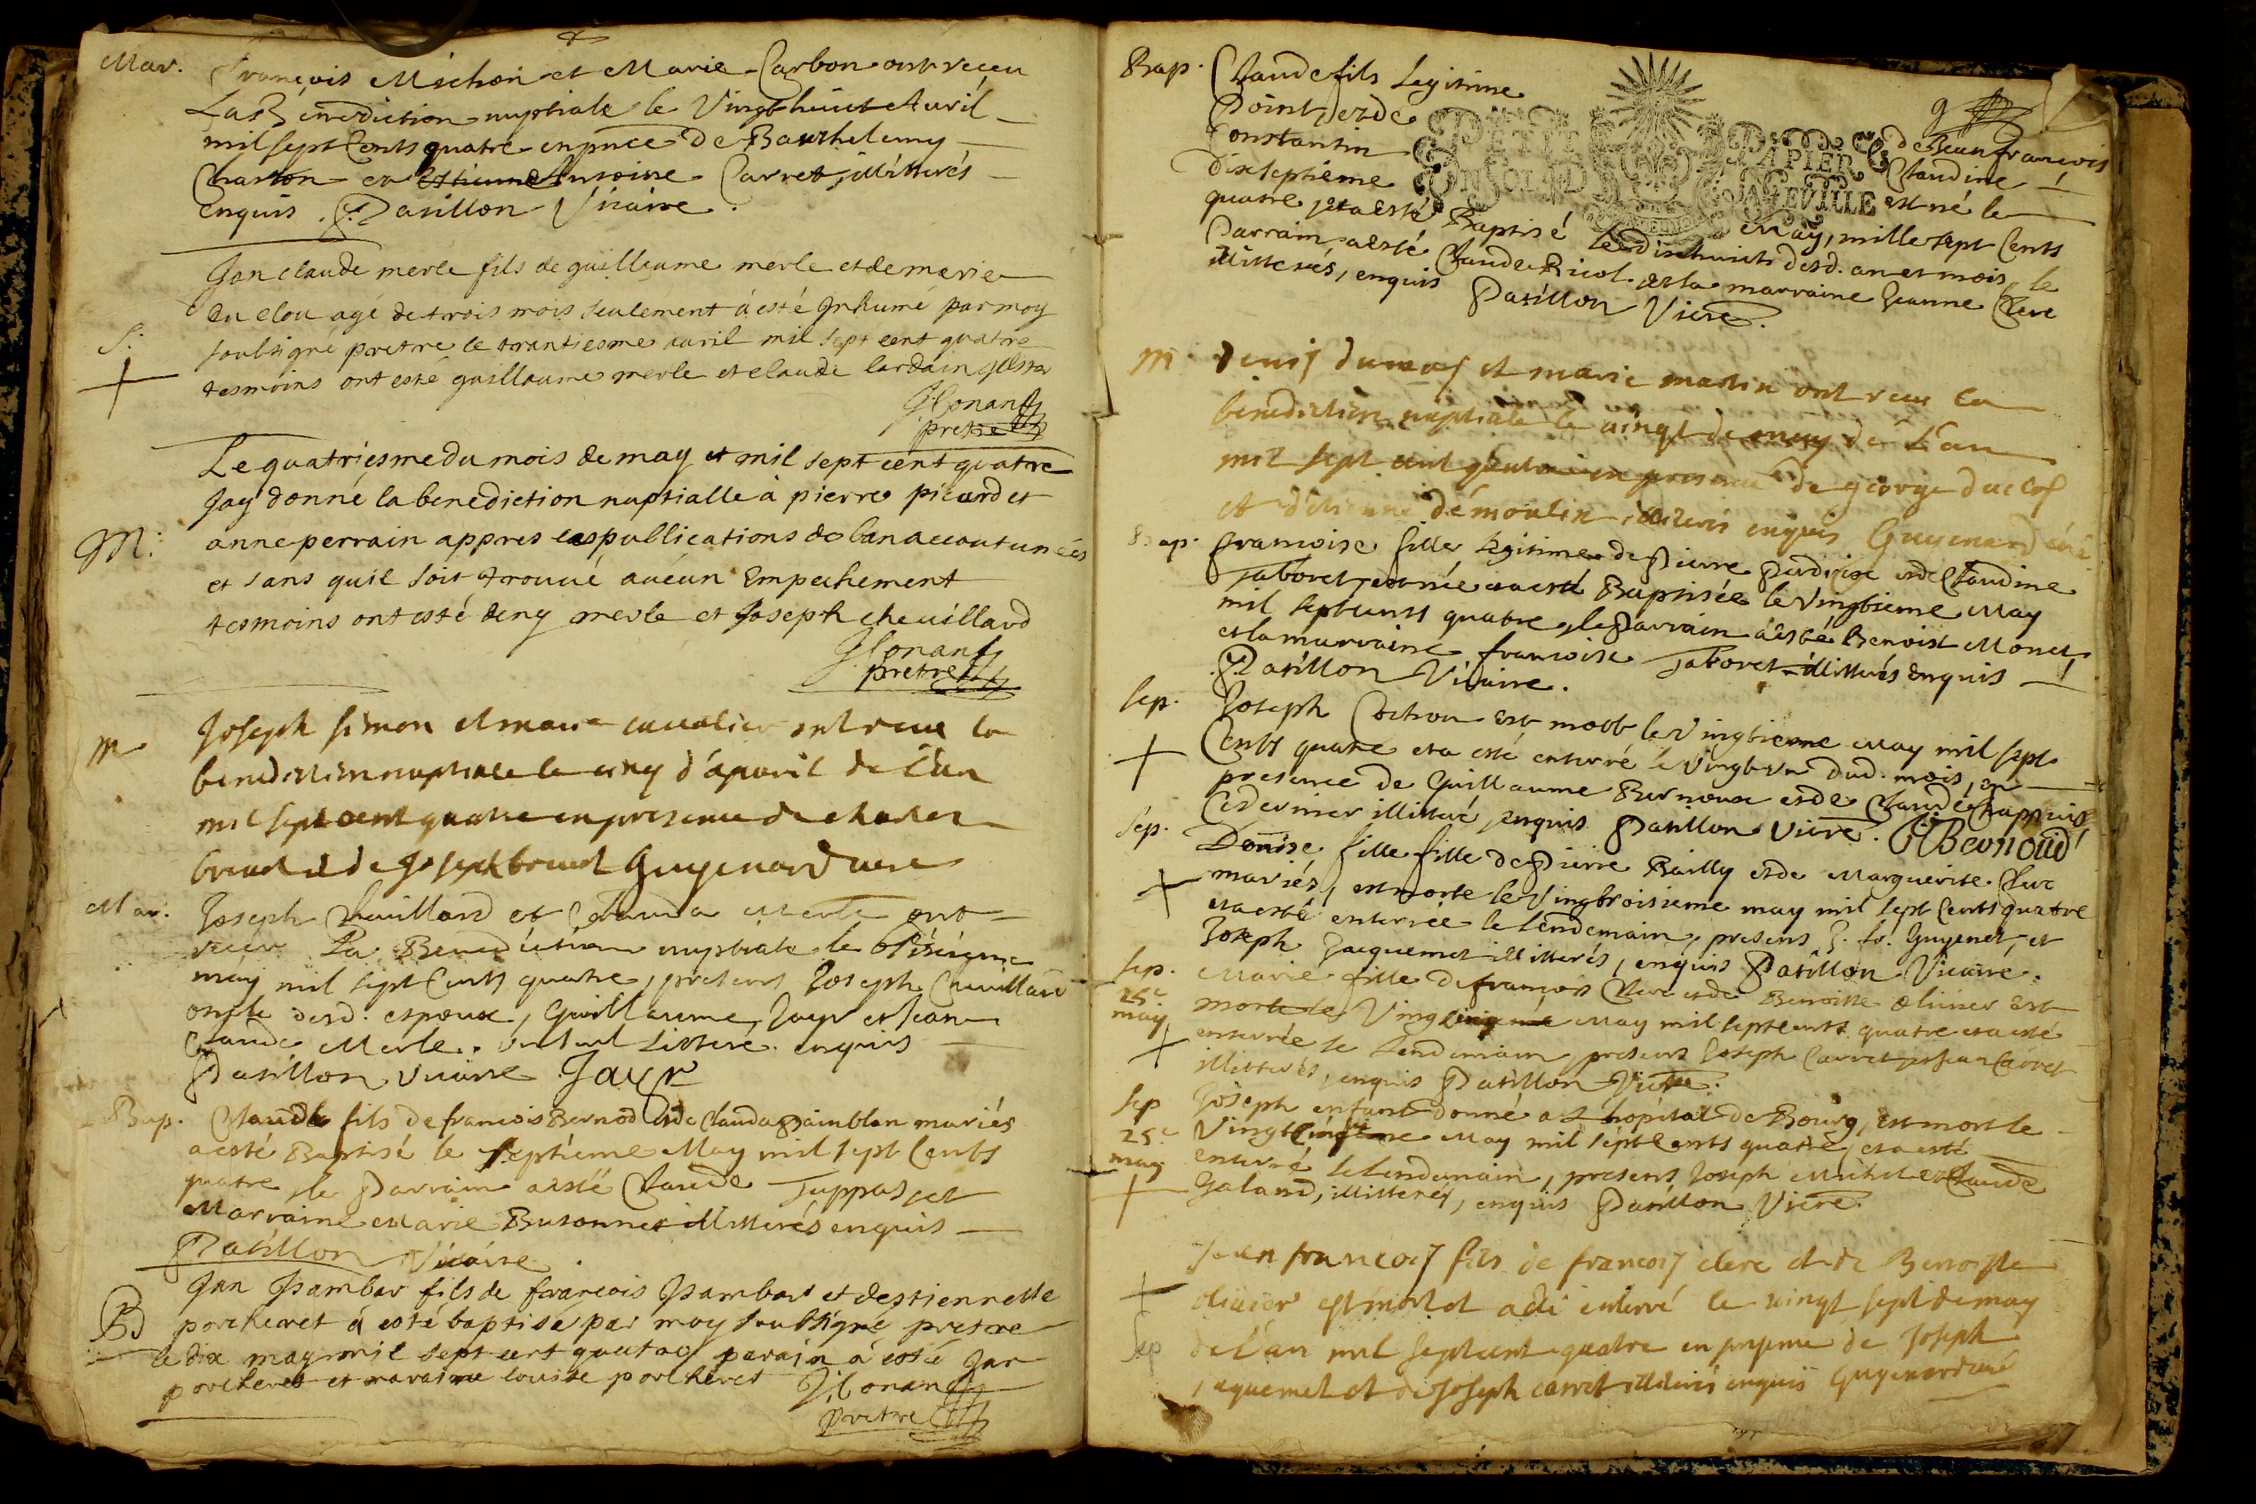 Mar. François Michon et Marie Carbon ont receu
La Bénédiction nuptiale le Vingt huict Auril
mil sept Cents quatre en pnce de Barthelemy
Charton et Antoine Carret, illitterés
enquis. Pasillon Vicaire.
Jan claude merle fils de guilleaume merle et de marie
du clou agé de trois mois seulement à esté Jnhumé par moy
S. soubsigné prettre le trantiesme auril mil sept cent quatre
tesmoins ont esté guillaume merle et claude lardain
prettre
Le quatriesme du mois de may et mil sept cent quatre
Jay donné la benediction nuptialle à pierre picard et
M. anne perrain appres les publications de ban accoutumées
et sans quil soit trouué aucun Empechement
tesmoins ont esté deny merle et Joseph cheuillard
prettre
m Joseph simon et marie cavalier ont receu la
benediction nuptiale le cinq d'apvril de l'an
mil sept cent quatre en presence de charles
breud et de Joseph breud Guyenard curé
Mar. Joseph Chuillard et Clauda Merle ont
receu La Benediction nuptiale le
may mil sept Cents quatre, presents Joseph Chuillard
oncle dud. espoux, Guillaume Jayr et Jean
Claude Merle. un seul littere. enquis
Pasillon vicaire Jayr
Bap. Claude fils de francois Bernod et de Clauda Painblan mariés
a esté Baptisé le septieme May mil sept Cents
quatre, le Parrain a esté Claude Tuppas, et
Marraine Marie Busonnet illitterés enquis
Pasillon Vicaire.
Jan Jsambar fils de françois Jsambart et destiennette
B porcheret á esté baptisé par moy soubsigné prettre
le dix may mil sept cert quatre parain à esté Jan
porcheret et maraine louise porcheret
prettre
Bap. Claude fils Legitime de Jean francois
Point, et de Claudine
Constantin est né le
dixseptieme May, mille sept Cents
PETIT PAPIER
quatre, et a esté Baptisé le dixhuict desd. an et mois, le
Parrain a esté Claude Ricol. et la marraine Jeanne Clerc
illitterés, enquis Pasillon Vicre.
m denis dumas et marie martin ont receu la
benediction nuptiale le vingt de may de l'an
mil sept cent quatre en presence de george duclos
et d'etienne démoulin illiterés enquis Guyenard curé
Bap. francoise fille legitime de Pierre Perdrix et de Claudine
Taboret, est née et a esté Baptisée le Vingtieme May
mil sept cents quatre, le Parrain a esté Benoist Monet
et la marraine francoise Taboret illitterés enquis
Pasillon Vicaire.
sep. Joseph Cochon est mort le Vingtieme May mil sept
Cents quatre et a esté enterré le Vingt un dud. mois, en
presence de Guillaume Bernoux et de Claude Chappuis
Ce dernier illitteré, enquis Pasillon Vicre. Bernoud
sep. Denise fille fille de Pierre Bailly et de Marguerite Clerc
mariés, est morte le Vingtroisieme may mil sept Cents quatre
et a esté enterrée le Lendemain, presens J. fr. Guyenet, et
Joseph Jacquemet illitterés, enquis Pasillon Vicaire.
sep. Marie fille de françois Clerc et de Benoitte oliuier est
25e may morte le Vingt May mil sept cents quatre et a esté
enterrée le Lendemain presens Joseph Carret et Jean Carret
illitterés, enquis Pasillon Vicre.
sep Joseph enfant donné a L'hopital de Bourg, est mort le
25e Vingt May mil sept Cents quatre, et a esté
may enterré le Lendemain, presens Joseph Michel et Claude
Galand, illitterés, enquis Pasillon Vicre.
Jean francois fils de francois clerc et de Benoiste
oliuier est mort et a été enterré le vingt sept de may
sep de l'an mil sept cent quatre en presence de Joseph
jaquemet et de Joseph carret illiterés enquis Guyenard curé